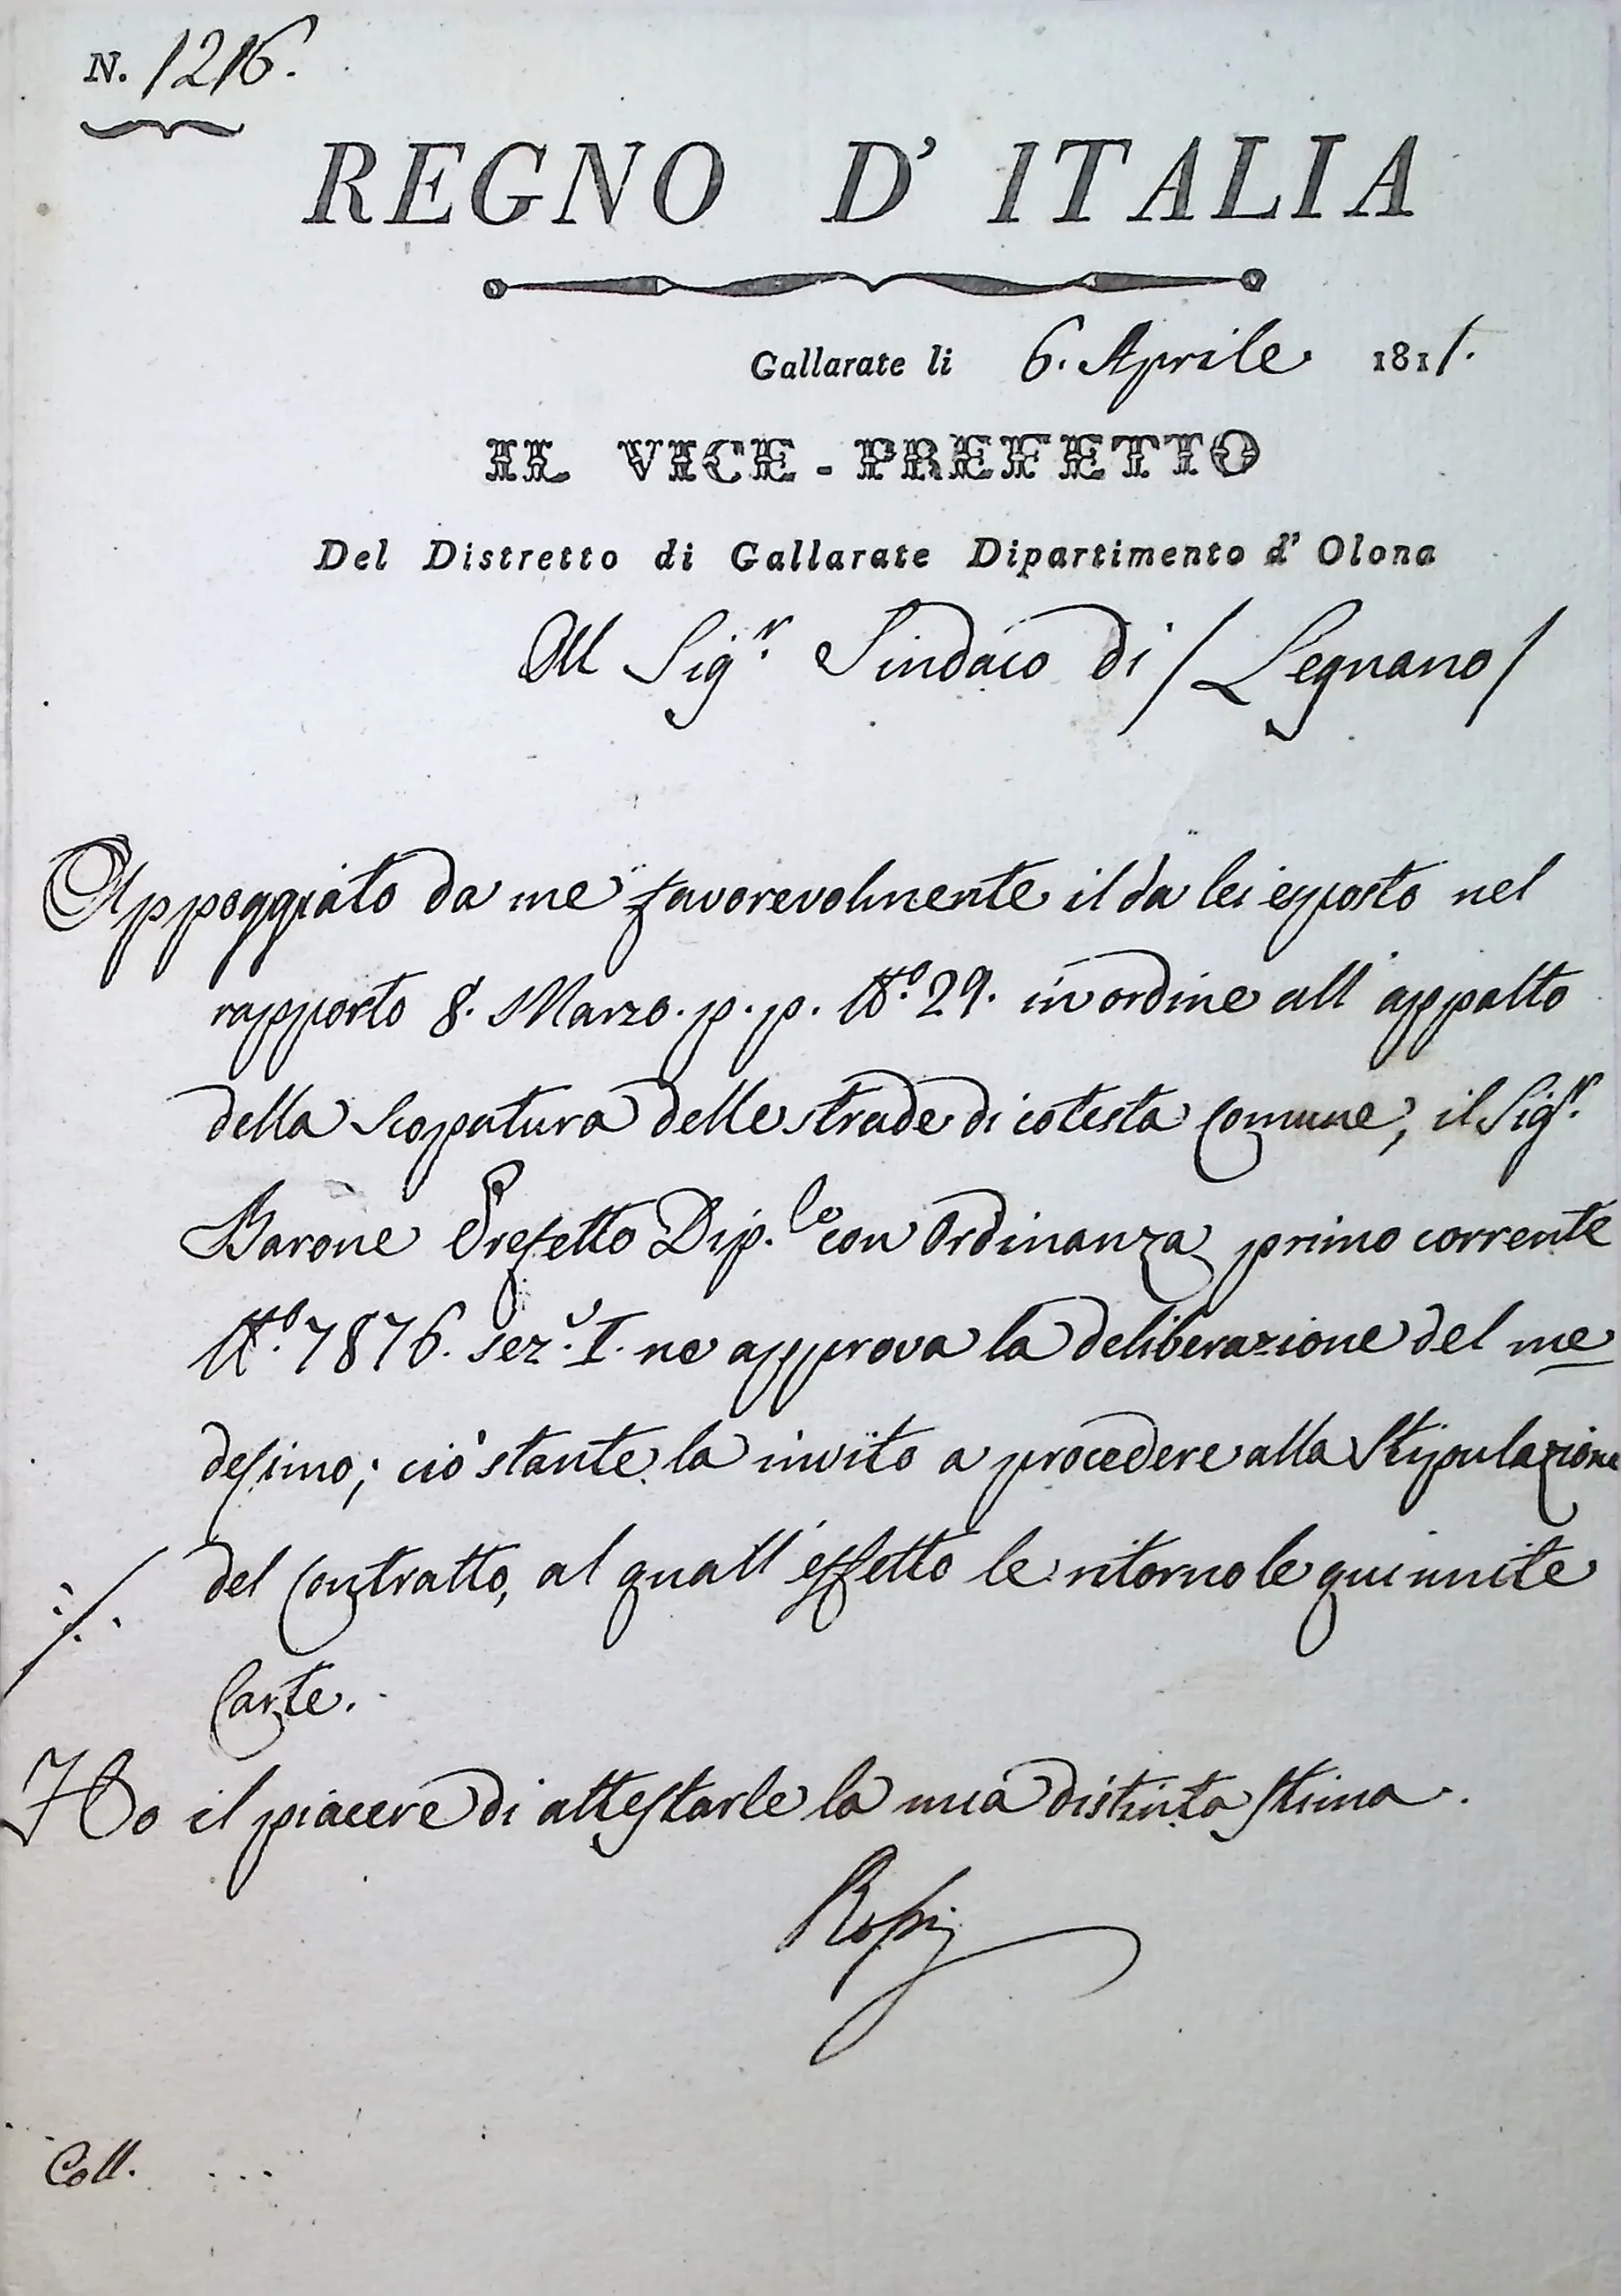 N. 1216.
REGNO D' ITALIA
Gallarate li 6. Aprile 1811.
IL VICE-PREFETTO
Del Distretto di Gallarate Dipartimento d' Olona
Al Sigr. Sindaco di / Legnano /
Appoggiato da me favorevolmente il da lei esposto nel
rapporto 8. Marzo. p. p. No. 29. in ordine all' appalto
della Scopatura delle strade di cotesta Comune, il Sigr.
Barone Prefetto Dip.le con Ordinanza primo corrente
No. 7876. sez.e I. ne approva la deliberazione del me
desimo; ciò stante la invito a procedere alla Stipulazione
del Contratto, al quall' effetto le ritorno le qui unite
Carte.
Ho il piacere di attestarle la mia distinta stima.
Rossi
Coll.